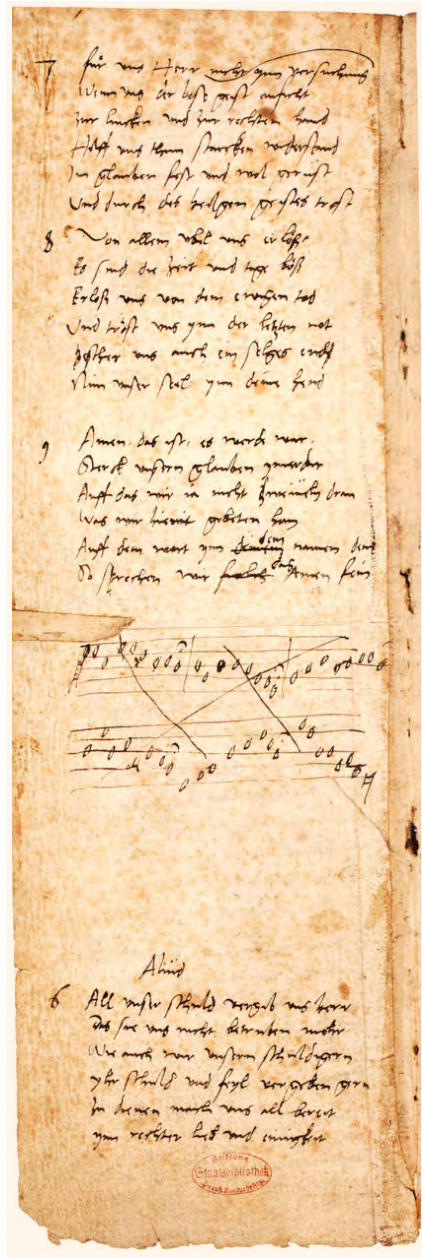 7 für uns Herr nicht ynn versuchung
Wenn uns der böse geist anficht
Zur lincken und zur rechten hand
Hilff uns thun starcken widerstand
Im glauben fest und wol gerüst
Und durch des heilgen geistes trost
8 Von allem ubel uns erlöse
Es sind die zeit und tage böse
Erlöse uns von dem ewigen tod
Und tröst uns ynn der letzten not
Bescher uns auch ein seliges ende
Nim unser seel ynn deine hend
9 Amen, das ist, es werde war,
Sterck unsern glauben ymerdar
Auff das wir ia nicht zweiveln dran
Was wir hiemit gebeten han
Auff dein wort ynn dem namen dein
So sprechen wir das Amen fein
Aliud
6 All unser schuld vergib uns herr
Das sie uns nicht betruben mehr
Wie auch wir unsern schuldigern
yhr schuld und feyl vergeben gern
Zu dienen mach uns all bereit
ynn rechter lieb und einigkeit
Stiftung
Staatsbibliothek